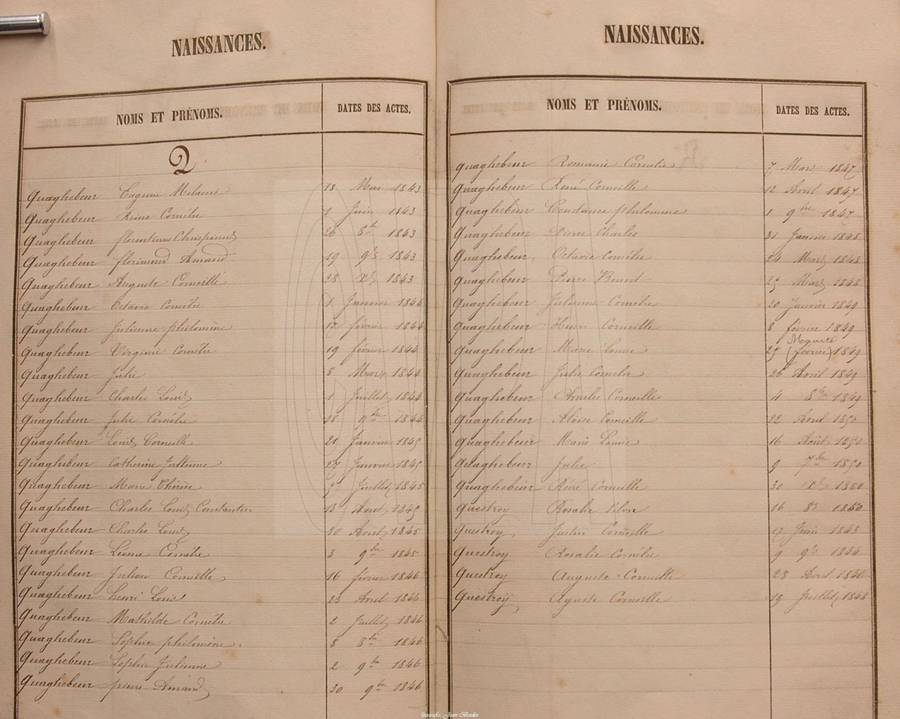 NAISSANCES.
NOMS ET PRÉNOMS. DATES DES ACTES.
Q
Quaghebeur Eugène Mélanie 13 Mai 1843
Quaghebeur Reine Cornélie 7 Juin 1843
Quaghebeur florentinus 26 8bre 1843
Quaghebeur florimond Amand 29 9bre 1843
Quaghebeur Auguste Corneille 28 Xbre 1843
Quaghebeur Octavie Cornélie 1 Janvier 1844
Quaghebeur Julienne philomène 12 février 1844
Quaghebeur Virginie Cornélie 19 février 1844
Quaghebeur Julie 8 Mars 1844
Quaghebeur Charles Louis 1 Juillet 1844
Quaghebeur Julie Cornélie 9bre 1844
Quaghebeur Louis Corneille 21 Janvier 1845
Quaghebeur Catherine Julienne 27 Janvier 1845
Quaghebeur Marie Thérèse Juillet 1845
Quaghebeur Charles Louis Constantin 13 Aout 1845
Quaghebeur Charles Louis 20 Aout 1845
Quaghebeur Léonie Cornélie 3 9bre 1845
Quaghebeur Julien Corneille 16 février 1846
Quaghebeur henri Louis 23 Avril 1846
Quaghebeur Mathilde Cornélie 2 Juillet 1846
Quaghebeur Sophie philomène 8 8bre 1846
Quaghebeur Sophie Julienne 2 9bre 1846
Quaghebeur pierre Amand 20 9bre 1846
NAISSANCES.
NOMS ET PRÉNOMS. DATES DES ACTES.
Quaghebeur Romanie Cornélie 7 Mars 1847
Quaghebeur René Corneille 12 Avril 1847
Quaghebeur Constance philomène 1 9bre 1847
Quaghebeur Pierre Charles 31 Janvier 1848
Quaghebeur Octavie Cornélie 24 Mars 1848
Quaghebeur Pierre Benoit 27 Mars 1848
Quaghebeur Julienne Cornélie 20 Janvier 1849
Quaghebeur Henri Corneille 8 février 1849
Quaghebeur Marie Louise 27 (février) 1849
Quaghebeur Julie Cornelia 26 Avril 1849
Quaghebeur Amélie Corneille 4 8bre 1849
Quaghebeur Aloise Corneille 22 Aout 1850
Quaghebeur Marie Louise 16 Août 1850
Quaghebeur Julie 9 7bre 1850
Quaghebeur René Corneille 30 Xbre 1850
Questroy Rosalie 16 8bre 1840
Questroy Justin Corneille 17 Juin 1843
Questroy Rosalie Cornélie 9 9bre 1844
Questroy Auguste Corneille 23 Avril 1846
Questroy Aguste Corneille 19 Juillet 1848